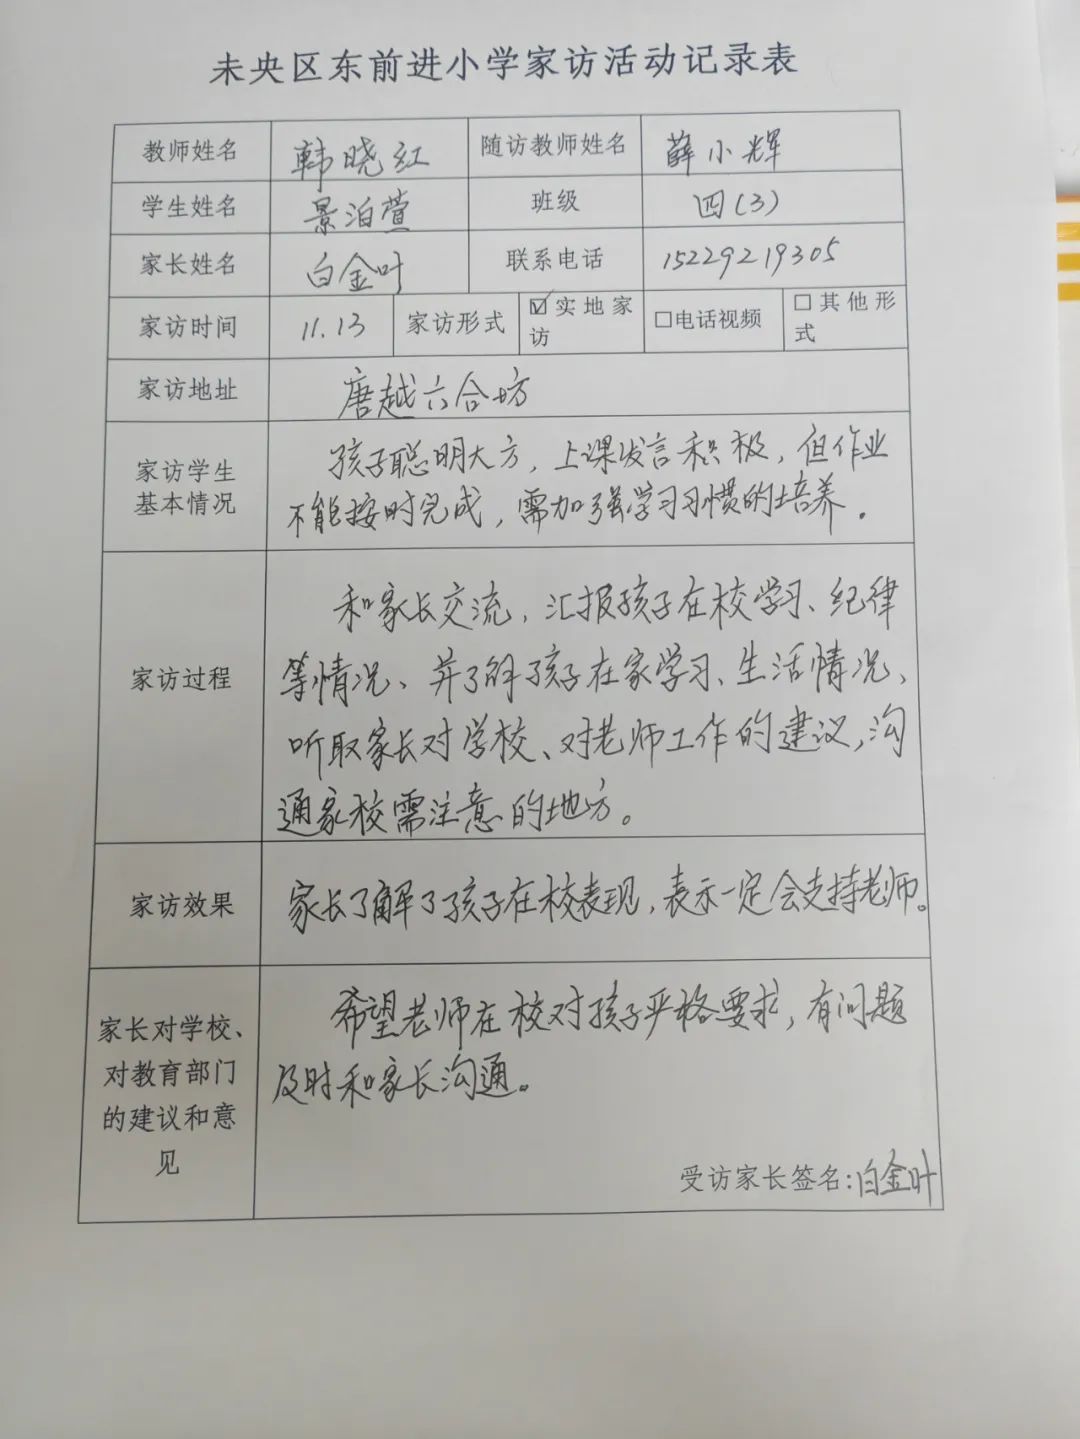 未央区东前进小学家访活动记录表
教师姓名 韩晓红 随访教师姓名 薛小辉
学生姓名 景泊萱 班级 四(3)
家长姓名 白金叶 联系电话 15229219305
家访时间 11.13 家访形式 ☑实地家访 □电话视频 □其他形式
家访地址 唐越六合坊
家访学生基本情况
孩子聪明大方，上课发言积极，但作业
不能按时完成，需加强学习习惯的培养。
家访过程
和家长交流，汇报孩子在校学习、纪律
等情况、并了解孩子在家学习、生活情况、
听取家长对学校、对老师工作的建议，沟
通家校需注意的地方。
家访效果
家长了解了孩子在校表现，表示一定会支持老师。
家长对学校、
对教育部门
的建议和意
见
希望老师在校对孩子严格要求，有问题
及时和家长沟通。
受访家长签名:白金叶